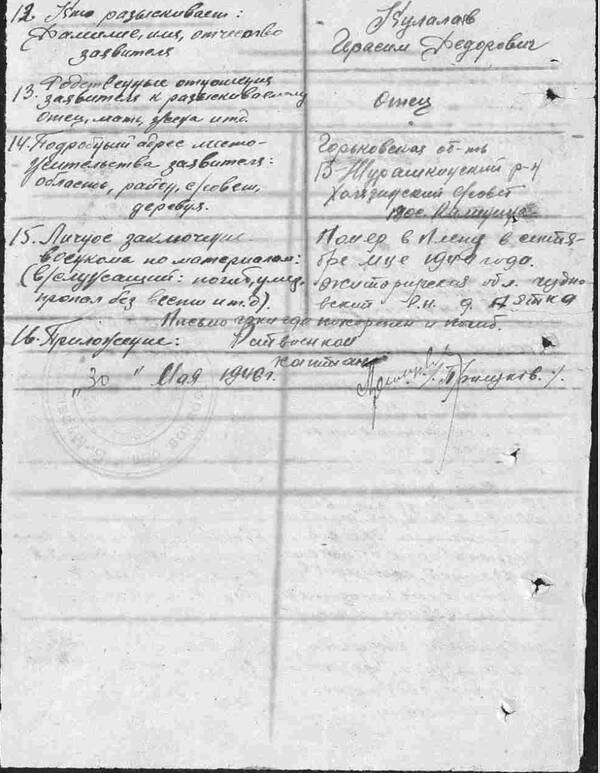 12. Кто разыскивает:
Фамилие, имя, отчество
заявителя
Кулалаев
Герасим Федорович
13. Родственные отношения
заявителя к разыскиваемому
отец, мать, жена и т.д.
Отец
14. Подробный адрес место-
жительства заявителя:
область, район, с/совет,
деревня.
Горьковская об-ть
Б Мурашкинский р-н
с/совет
пос.
15. Личное заключение
военкома по материалам:
(в/служащий: погиб, умер,
пропал без вести и т.д).
Помер в плену в сентя-
бре м-це 194 года.
Житомирская обл. чудно-
вский р.н. д. Пятка
Письмо похоронен и погиб.
16. Приложение:
Райвоенком
капитан
"30" мая 1946 г.